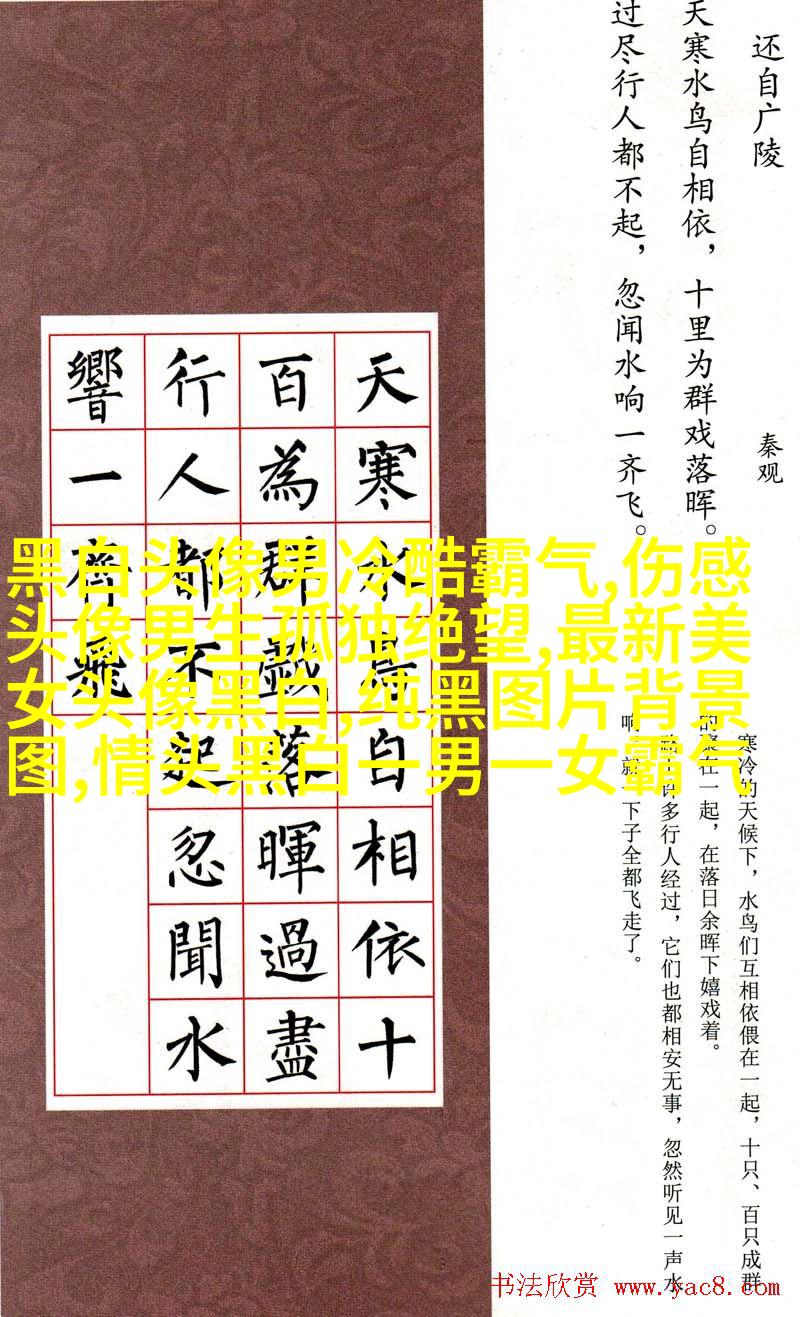 还自广陵
秦观
天寒水鸟自相依，十里为群戏落晖。
过尽行人都不起，忽闻水响一齐飞。
寒冷的天候下，水鸟们互相依偎在一起，十只、百只成群
的聚在一起，在落日余晖下嬉戏着。
许多行人经过，它们也都相安无事，忽然听见一声水
响，就一下子全都飞走了。
天寒水鳥自相依十
百為群戲落暉過盡
行人都不起忽聞水
響一齊飛
黑白头像男冷酷霸气,伤感
头像男生孤独绝望,最新美
女头像黑白,纯黑图片背景
图,情头黑白一男一女霸气
书法欣赏 www.yac8.com